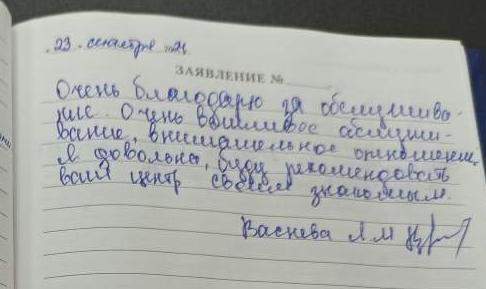 23 сентября 21
ЗАЯВЛЕНИЕ №
Очень благодарю за обслужива-
ние. Очень вежливое обслужи-
вание, внимательное отношение,
я довольна, буду рекомендовать
ваш центр своим знакомым.
Васнева Л.М